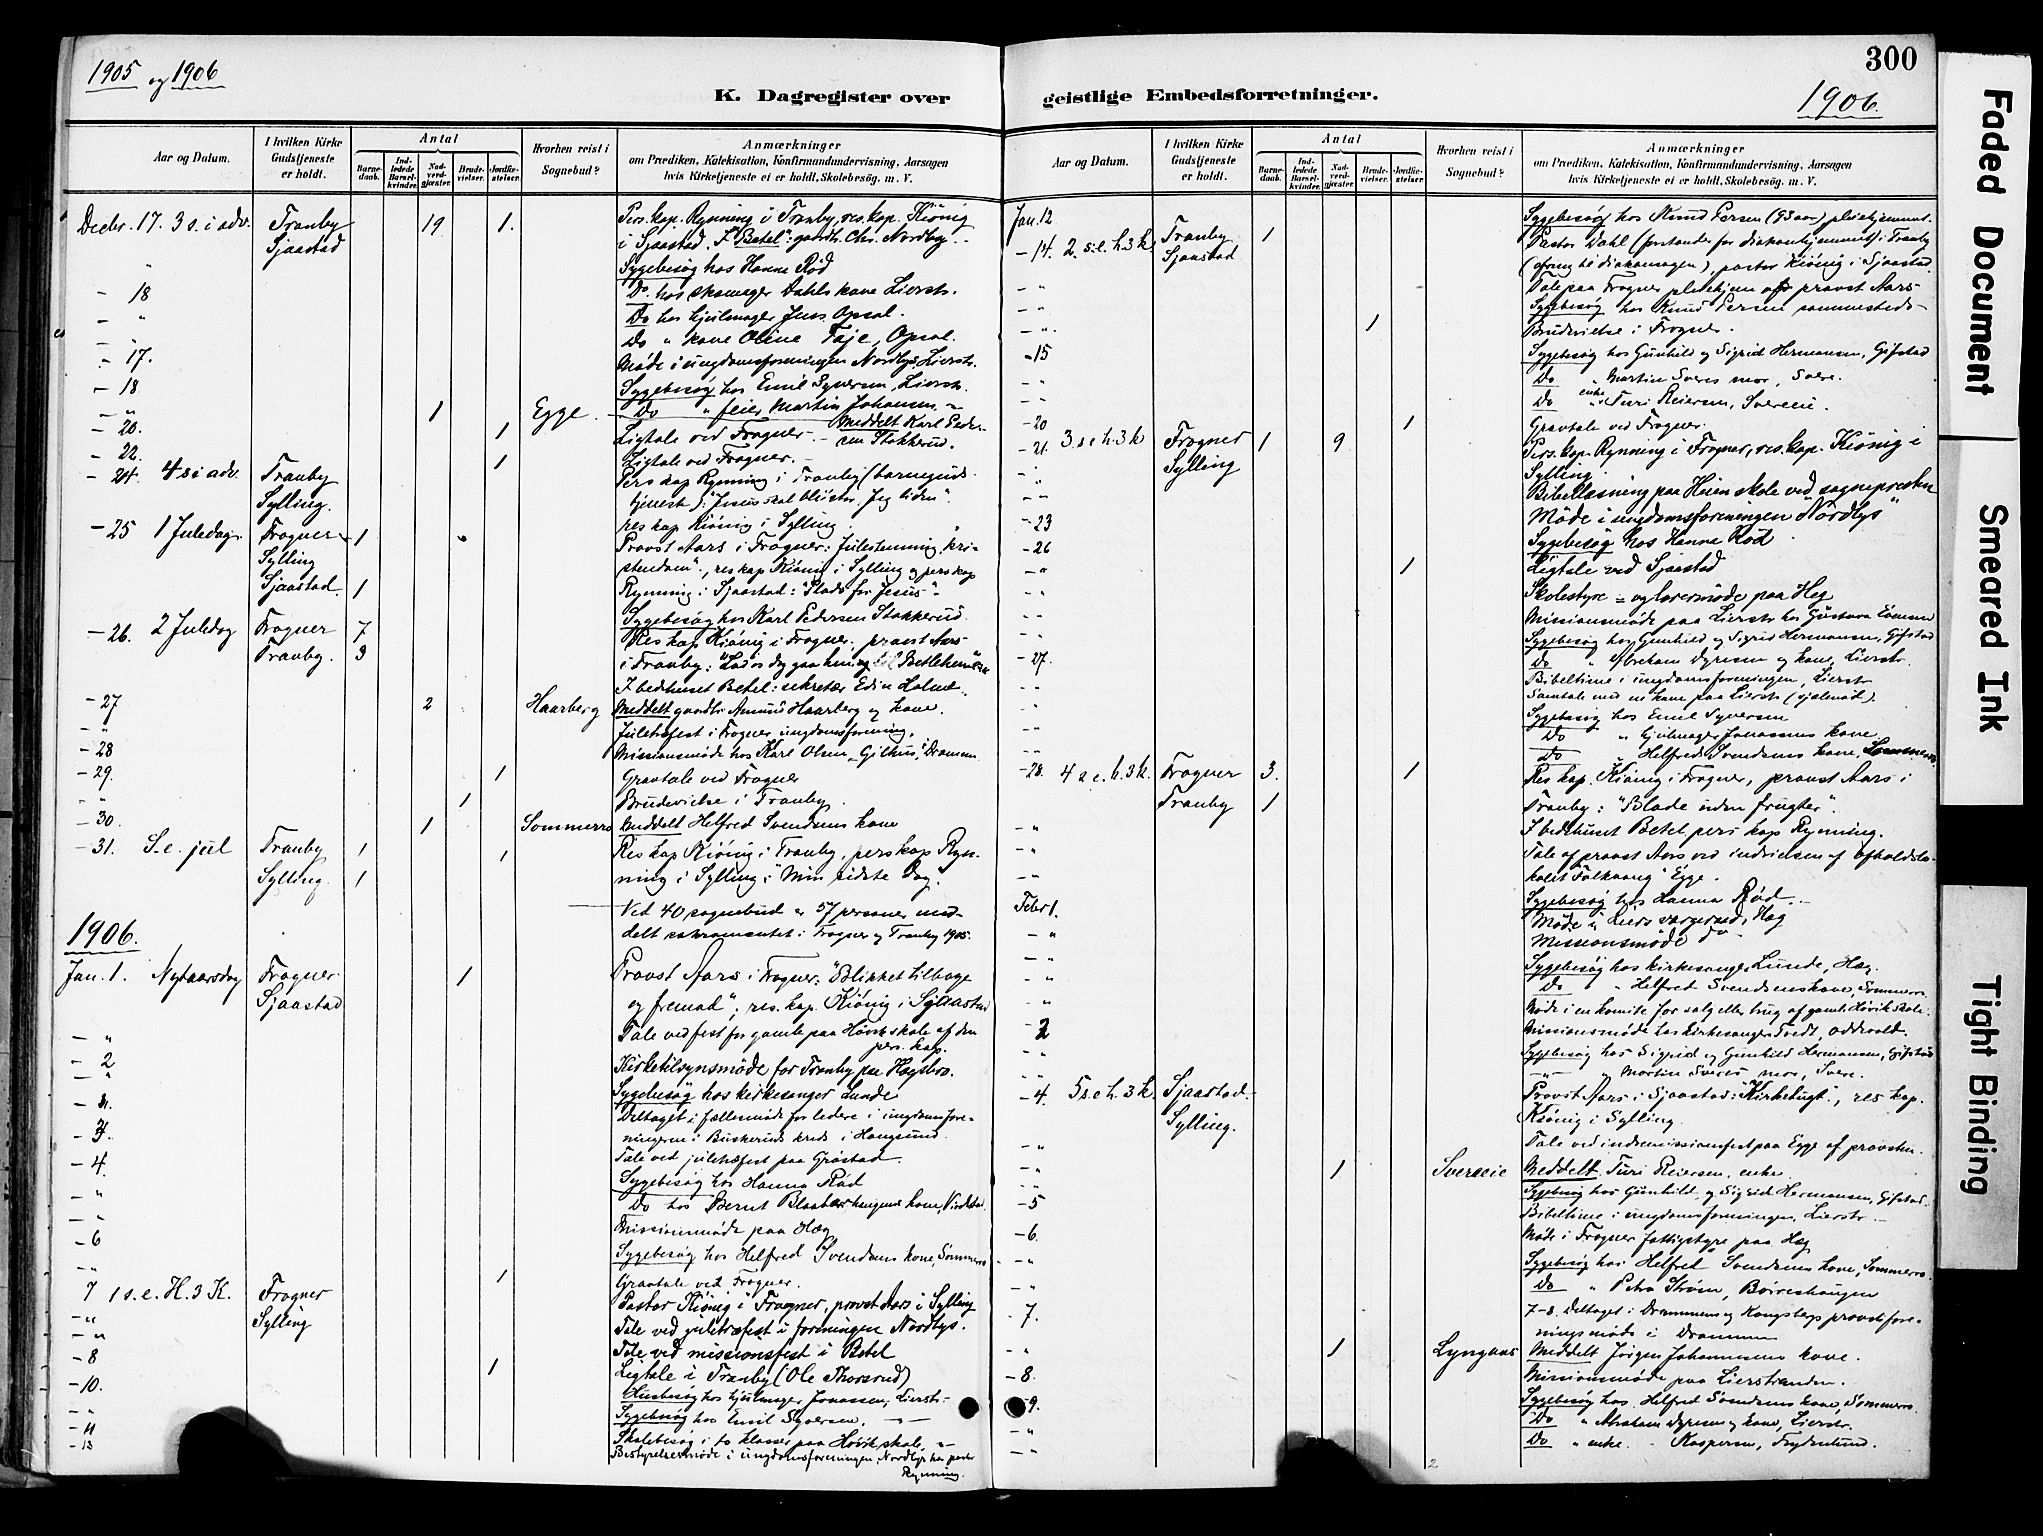 1905 og 1906
K. Dagregister over
Aar og Datum.
I hvilken Kirke Gudstjeneste er holdt.
Antal
Barnedaab.
Indledede Barselkvinder.
Nadverdgjæster.
Brudevielser.
Jordfæstelser.
Hvorhen reist i Sognebud?
Anmærkninger
om Prædiken, Katekisation, Konfirmandundervisning, Aarsagen
hvis Kirketjeneste ei er holdt, Skolebesøg. m. V.
Decbr. 17. 3 s. i adv. Tranby 19 1. Pers. kap. Rynning i Tranby, res. kap. Kiönig
Sjaastad i Sjaastad. I "Betel": gaardbr. Chr. Nordby.
" Sygebesøg hos Hanne Rød
- 18 Do. hos skomager Dahls kone Lierstr.
- " Do hos hjulmager Jens Opsal.
- " Do " kone Oline Faje, Opsal.
- 17. Møde i ungdomsforeningen Nordlys, Lierstr.
- 18 Sygebesøg hos Emil Syversen, Lierstr.
- " 1 Egge. Do " feier Martin Johansen, "
- 20. 1 Ligtale ved Frogner - Meddelt Karl Pedersen Stokkerud.
- 22. 1 Ligtale ved Frogner. -
- 24. 4 s i adv. Tranby Pers kap Rynning i Tranby (barneguds-
Sylling. tjeneste): "Jesus skal blive stor, jeg liden".
res kap Kiönig i Sylling.
- 25 1 Juledag Frogner 1 Provst Aars i Frogner: Julestemning, kri-
Sylling stendom"., res kap Kiönig i Sylling og pers kap
Sjaastad. 1 Rynning i Sjaastad: "Plads for Jesus"
Sygebesøg hos Karl Pedersen Stokkerud.
- 26. 2 Juledag Frogner 7 Res kap Kiönig i Frogner, provst Aars
Tranby. 3 i Tranby: "Lad os dog gaa hen og til Betlehem"
I bedhuset Betel: sekretær Edin Holme.
- 27 2 Haarberg Meddelt gaardbr. Amund Haarberg og kone.
- " Juletrefest i Frogner ungdomsforening.
- 28 Missionsmøde hos Karl Olsen, Gilhus, Drammen
- 29. 1 Gravtale ved Frogner
- " 1 Brudevielse i Tranby.
- 30. 1 Sommerro Meddelt Helfred Svendsens kone
- 31. S. e. jul Tranby 1 1 Res kap Kiönig i Tranby, pers kap Ryn-
Sylling. 1 ning i Sylling: "Min sidste Dag."
Ved 40 sognebud er 57 personer med-
1906. delt sakramentet i Frogner og Tranby 1905.
Jan. 1. Nytaarsdag Frogner 1 Provst Aars i Frogner: "Blikket tilbage
Sjaastad og fremad"; res. kap. Kiönig i Sjaastad
- " Tale ved fest for gamle paa Høvik skole af den pers. kap.
- 2 Kirketilsynsmøde for Tranby paa Hægsbro.
- " Sygebesøg hos kirkesanger Lunde
- 3. Deltaget i fællesmøde for ledere i ungdomsfore-
ningerne i Buskeruds kreds i Haugsund.
- 4. Tale ved juletræfest paa Gröstad.
- " Sygebesøg hos Hanna Rød
- " Do hos Bernt Blaabærhaugens kone,
- 6 Missionsmøde paa Hæg
- " Sygebesøg hos Helfred Svendsens kone, Sommerro
1 Gravtale ved Frogner.
7 1 s. e. H. 3 K. Frogner Pastor Kiönig i Frogner, provst Aars i Sylling
Sylling
- " Tale ved juletræfest i foreningen Nordlys.
- " Tale ved missionsfest i Betel
- 8 1 Ligtale i Tranby (Ole Thorsrud)
- 10. Husbesøg hos hjulmager Jonassen, Lierstr.
- " Sygebesøg hos Emil Syversen, - " -
- 11 Skolebesøg i to klasser paa Høvik skole, - " -
- 13 Bestyrelsesmøde i ungdomsforeningen Nordlys hos pastor Rynning.
300
1906.
geistlige Embedsforretninger.
Aar og Datum.
I hvilken Kirke Gudstjeneste er holdt.
Antal
Barnedaab.
Indledede Barselkvinder.
Nadverdgjæster.
Brudevielser.
Jordfæstelser.
Hvorhen reist i Sognebud?
Anmærkninger
om Prædiken, Katekisation, Konfirmandundervisning, Aarsagen
hvis Kirketjeneste ei er holdt, Skolebesøg. m. V.
Jan. 12 Sygebesøg hos Knud Persen (93 aar) pleiehjemmet.
- 14. 2. s. e. h. 3 k. Tranby 1 Pastor Dahl (forstander for diakonhjemmet) i Tranby
Sjaastad (ofring til diakonsagen), pastor Kiönig i Sjaastad.
- " Tale paa Frogner pleiehjem af provst Aars
- " Sygebesøg hos Knud Persen sammesteds
- " 1 Brudevielse i Frogner.
- 15 Sygebesøg hos Gunhild og Sigrid Hermansen, Gifstad
- " Do " Martin Sveres mor, Svere.
- " Do " enke Turi Reiersen, Svereeie.
- 20 1 Gravtale ved Frogner.
- 21. 3 s e h. 3 k Frogner 1 9 Pers. kap. Rynning i Frogner, res. kap. Kiönig i
Sylling Sylling
- " Bibellæsning paa Heien skole ved sognepresten
- 23 Møde i ungdomsforeningen "Nordlys"
- 26 Sygebesøg hos Hanne Rød
- " 1 Ligtale ved Sjaastad
- " Skolestyre- og lærermøde paa Heg
- " Missionsmøde paa Lierstr. hos Gustava
- " Sygebesøg hos Gunhild og Sigrid Hermansen, Gifstad
- 27. Do " Abraham Dyresen og kone, Lierstr.
- " Bibeltime i ungdomsforeningen, Lierstr
- " Samtale med en kone paa Lierstr (sjælenød).
- " Sygebesøg hos Emil Syversen
- " Do " Hjulmager Jonassens kone
- " Do " Helfred Svendsens kone, Sommerro.
- 28. 4 s. e. h. 3 k. Frogner 3. 1 Res kap. Kiönig i Frogner, provst Aars i
Tranby 1 Tranby: "Blade uden frugter".
- " I bedhuset Betel pers kap Rynning.
- " Tale af provst Aars ved indvielsen af afholdslo-
kalet "Folkvang" Egge.
- " Sygebesøg hos Hanna Rød. -
Febr 1. Møde i Liers værgeraad, Hæg
- " Missionsmøde do
- " Sygebesøg hos kirkesanger Lunde, Hæg.
- " Do " Helfred Svendsens kone, Sommerro.
- " Møde i en komite for salg eller brug af gamle Høvik skole.
- 2 Missionsmøde hos kirkesanger Tvedt, Oddevold.
- " Sygebesøg hos Sigrid og Gunhild Hermansen, Gifstad
- " - " - " Martin Sveres mor, Svere.
- 4. 5 s. e h. 3 k. Sjaastad. Provst Aars i Sjaastad: "Kirketugt"., res kap.
Sylling. Kiönig i Sylling.
- " Tale ved indremissionsfest paa Egge af provsten.
- " 1 Svereeie Meddelt Turi Reiersen, enke
- " Sygebesøg hos Gunhild og Sigrid Hermansen, Gifstad.
- 5 Bibeltime i ungdomsforeningen, Lierstr -
- 6. Møde i Frogner fattigstyre paa Hæg
- " Sygebesøg hos Helfred Svendsens kone, Sommerro.
- " Do " Petra Strøm, Børreshaugen
- 7. 7-8. Deltaget i Drammens og Kongsbergs provstifore-
ningsmøde i Drammen
- " 1 Lyngaas Meddelt Jørgen Johannesens kone.
- 8. Missionsmøde paa Lierstranden.
- 9. Sygebesøg hos. Helfred Svendsens kone, Sommerro.
- " Do " Abraham Dyresen og kone, Lierstr.
- " Do " enke. - Kaspersen, Frydenlund.
2
Faded Document
Smeared Ink
Tight Binding